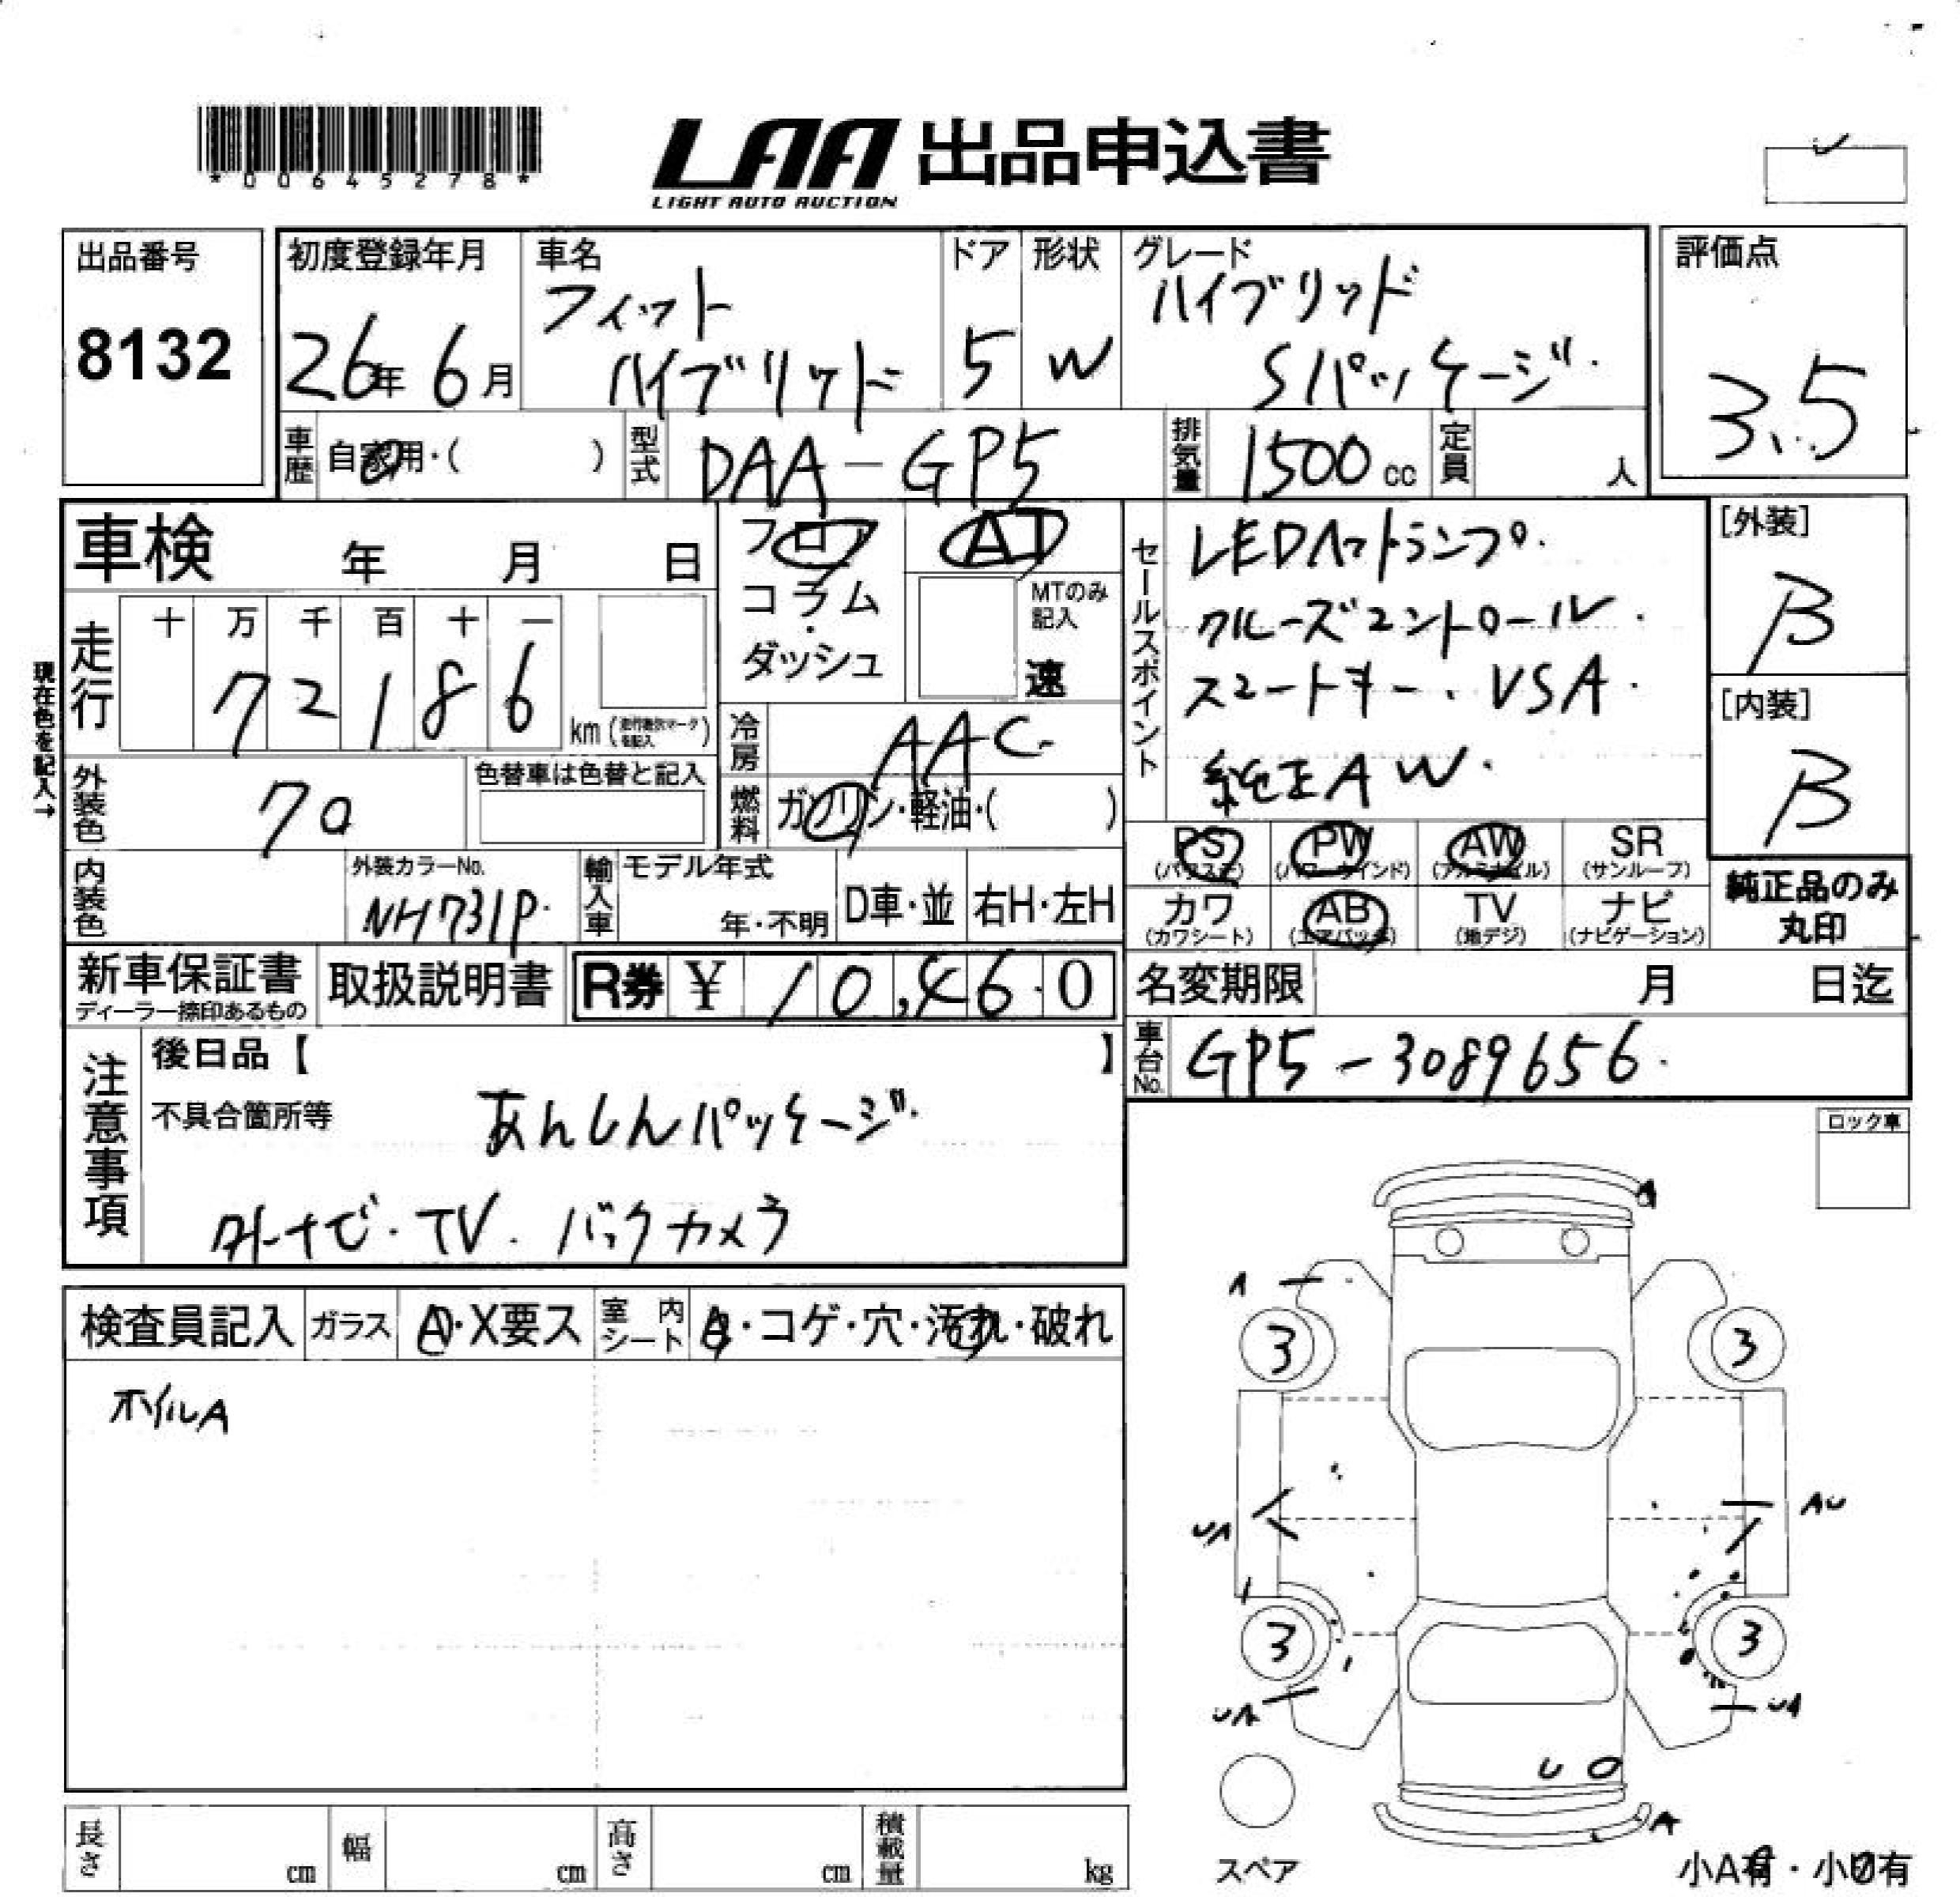 *00645278*
LAA 出品申込書
LIGHT AUTO AUCTION
出品番号
8132
初度登録年月
26年 6月
車名
フィット
ハイブリッド
ドア
5
形状
W
グレード
ハイブリッド
Sパッケージ.
評価点
3.5
車歴 自家用・( )
型式 DAA-GP5
排気量 1500cc
定員 人
車検 年 月 日
フロア
コラム
・
ダッシュ
AT
MTのみ
記入
速
セールスポイント
LEDヘットランプ.
クルーズコントロール.
スマートキー. VSA.
純正AW.
[外装]
B
[内装]
B
現在色を記入→
走行
十 万 千 百 十 一
7 2 1 8 6
km
冷房 AAC
外装色
色替車は色替と記入
燃料 ガソリン・軽油・( )
PS PW AW SR
(パワステ) (パワーウインド) (アルミホイル) (サンルーフ)
カワ AB TV ナビ
(カワシート) (エアバッグ) (地デジ) (ナビゲーション)
純正品のみ
丸印
内装色
外装カラーNo.
NH731P.
輸入車
モデル年式
年・不明
D車・並
右H・左H
新車保証書
ディーラー捺印あるもの
取扱説明書
R券 ¥ 10,460
名変期限 月 日迄
車台No. GP5-3089656.
注意事項
後日品【 】
不具合箇所等
あんしんパッケージ.
外ナビ. TV. バックカメラ
ロック車
検査員記入
ガラス A・X要ス
室内シート A・コゲ・穴・汚れ・破れ
ホイルA
A
A
3 3
UA
AU
3 3
UA
UA
U
A
スペア
小A有・小U有
長さ cm
幅 cm
高さ cm
積載量 kg